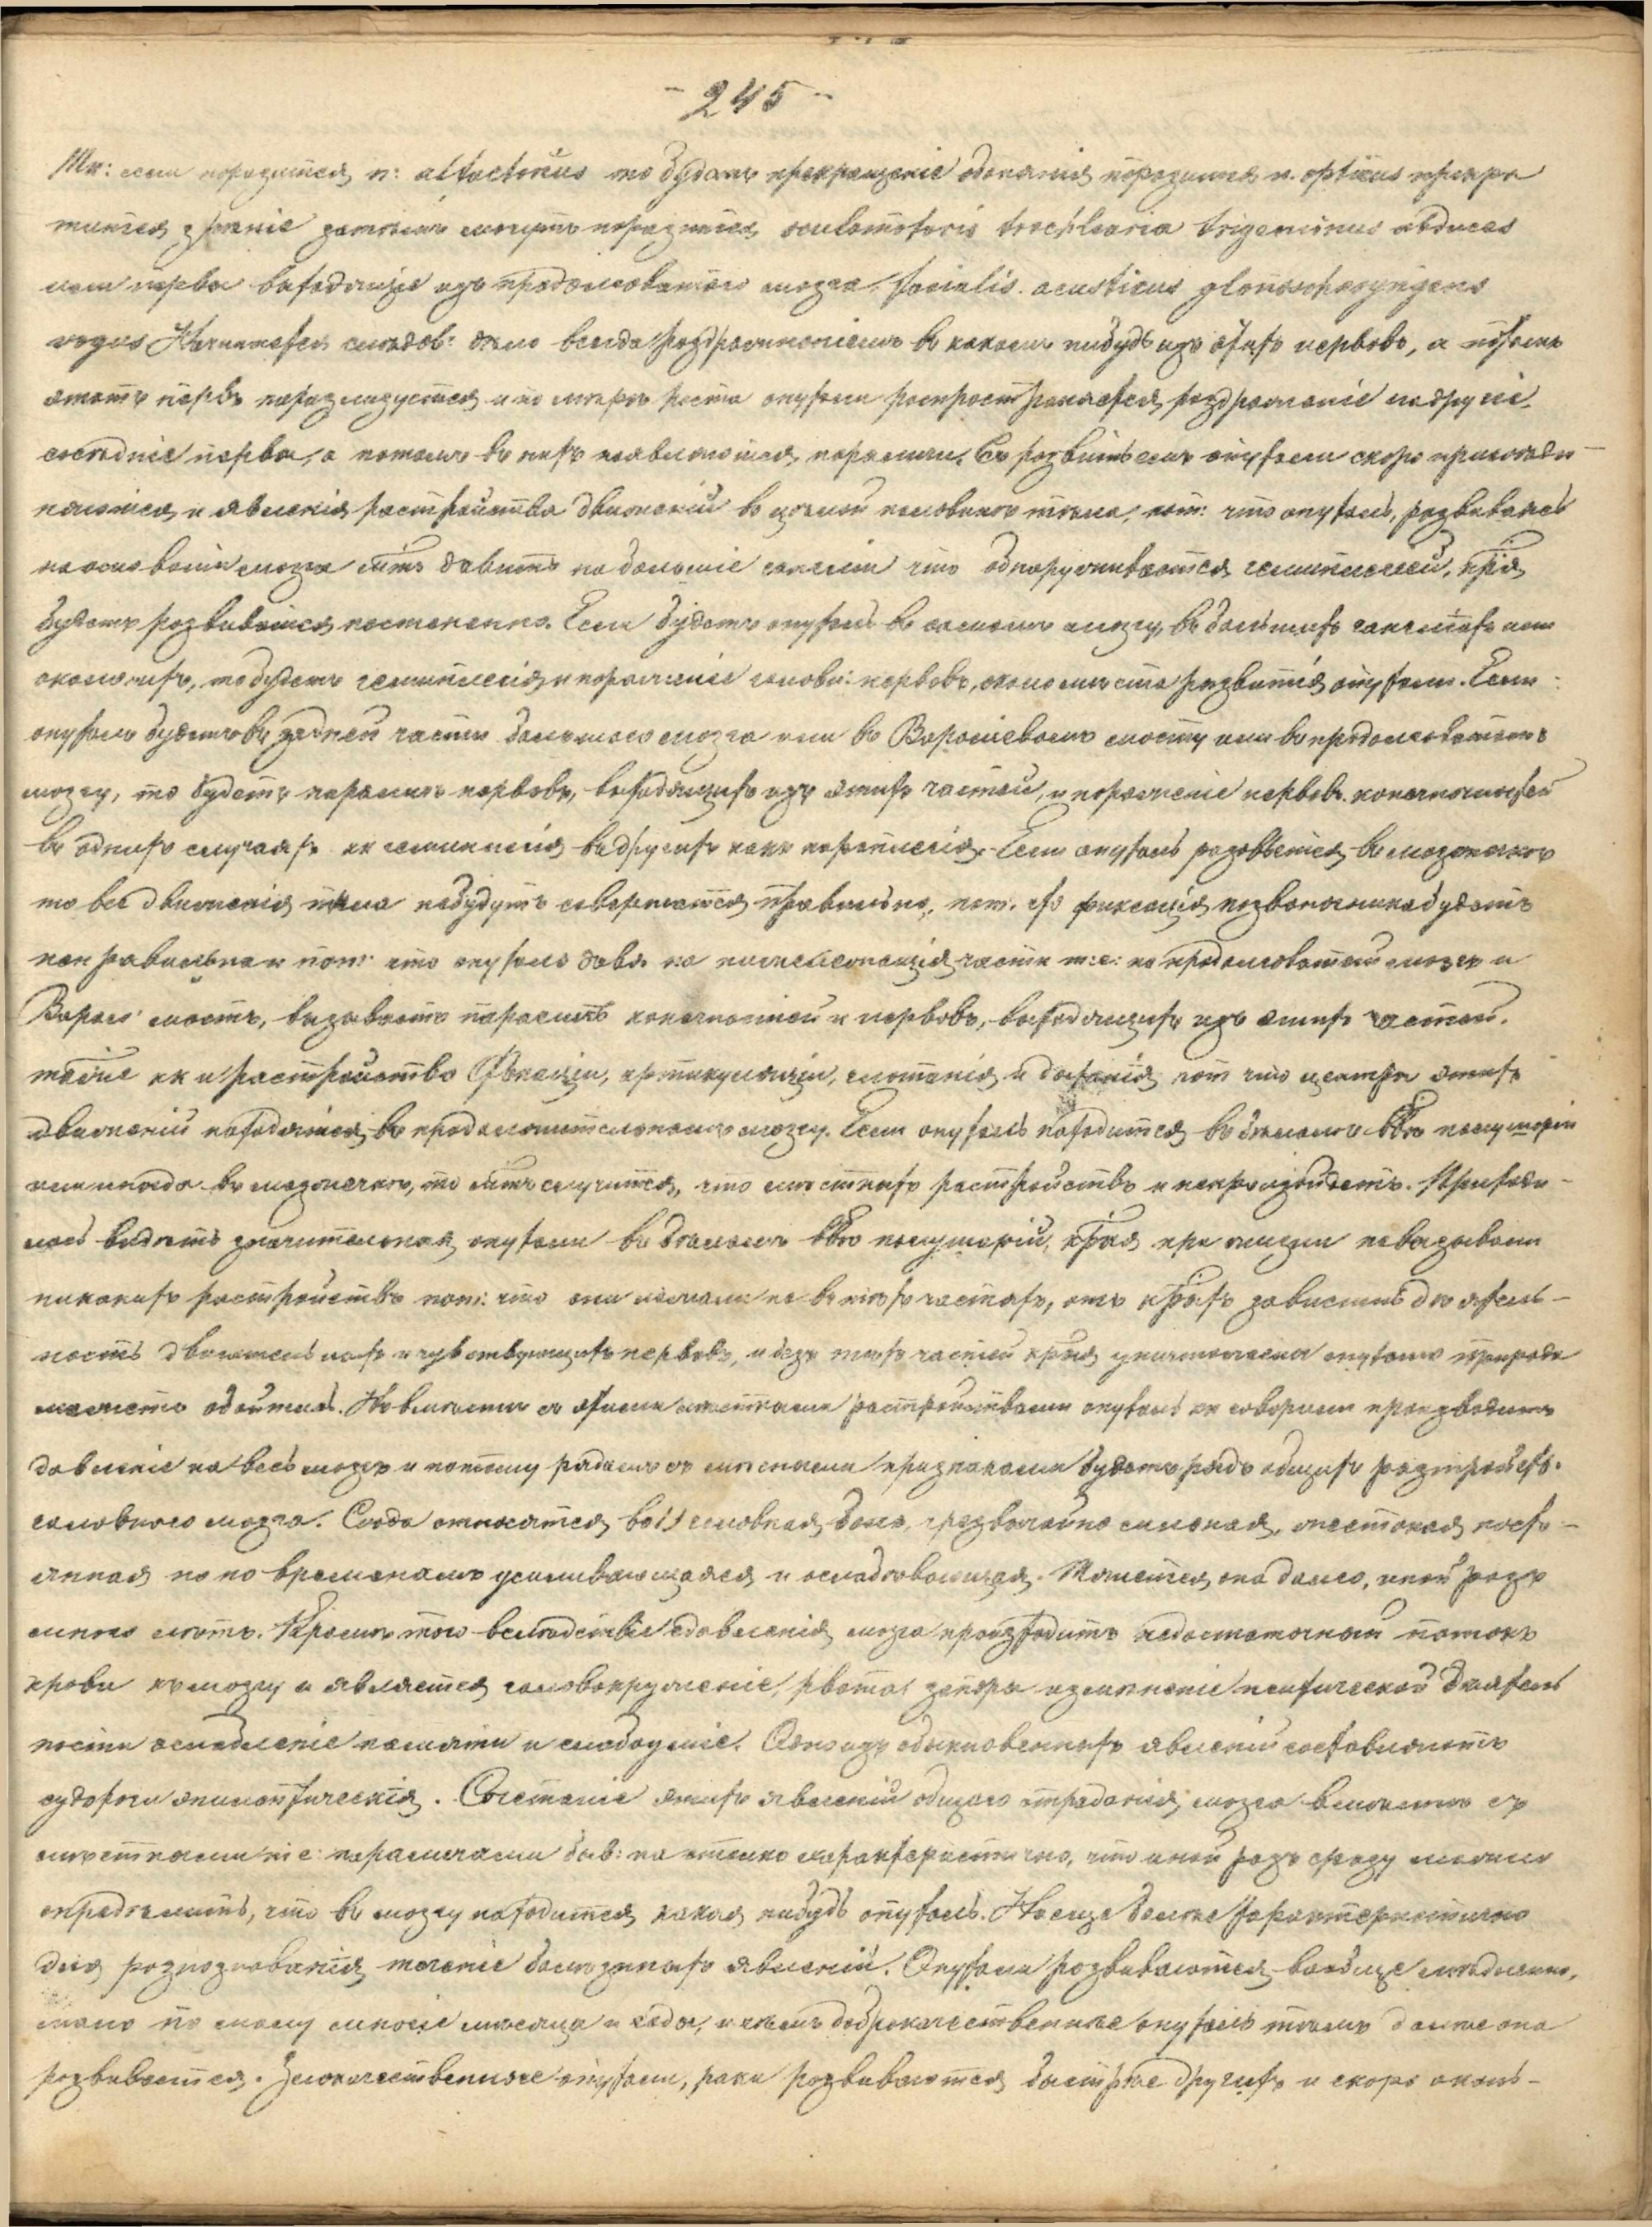 - 245 -
Тк: если поразится n: alfactorius то будетъ прекращеніе обонянія поразится n. opticus прекра
тится зрѣніе затѣмъ могутъ поразится oculomotoris trochlearia trigeminus abduces
или нервы выходящіе изъ продолговатаго мозга, facialis. acusticus glonosopharyngens
vagus Начинается слѣдов: дѣло всегда раздраженіемъ въ какомъ нибудь изъ этихъ нервовъ, а потомъ
этотъ нервъ парализуется и по мѣрѣ роста опухоли распространяется раздраженіе на другіе
сосѣдніе нервы, а потомъ въ нихъ являются параличи. Съ развитіемъ опухоли скоро присоеди-
няются и явленія растройства движеній въ цѣлой половинѣ тѣла, пот: что опухоль, развиваясь
на основаніи мозга мтъ давить на большіе гангліи что обнаруживается гемиплегіей, крія
будетъ развиваться постепенно. Если будетъ опухоль въ самомъ мозгу, въ большихъ гангліяхъ или
около нихъ, то будетъ гемиплегія и пораженіе головн: нервовъ, около мѣста развитія опухоли. Если
опухоль будетъ въ задней части большого мозга или въ Вароліевомъ мосту или въ продолговатомъ
мозгу, то будетъ параличъ нервовъ, выходящихъ изъ этихъ частей, и пораженіе нервовъ конечностей
въ однихъ случаяхъ кк гемиплегія въ другихъ какъ параплегія. Если опухоль разовьется въ мозжечкѣ
то всѣ движенія тѣла не будутъ совершатся правильно, пот. что фиксація позвоночника будетъ
неправильна и пот: что опухоль давя на нижележащія части т:е: на продолговатый мозгъ и
Варол: мостъ, вызываетъ параличъ конечностей и нервовъ, выходящихъ изъ этихъ частей.
также кк и растройство фонаціи, артикуляціи, глотанія и дыханія пот что центры этихъ
движеній находятся въ продолжительномъ мозгу. Если опухоль находится въ бѣломъ ввѣ полушарій
или иногда въ мозжечкѣ, то мтъ случится, что мѣстныхъ растройствъ и непроизойдетъ. Приходи-
лось видѣть значительныя опухоли въ бѣломъ ввѣ полушарій, крыя при жизни невызывали
никакихъ растройствъ пот: что они лежали не въ тѣхъ частяхъ, отъ крыхъ зависитъ дѣятель-
ность двигательныхъ и чувствующихъ нервовъ, и безъ тѣхъ частей крыя уничтожены опухолью природа
можетъ обойтись. Но вмѣстѣ съ этими мѣстными растройствами опухоль кк говорили производитъ
давленіе на весь мозгъ и потому рядомъ съ мѣстными признаками будетъ рядъ общихъ разтройств.
головного мозга. Сюда относятся во 1) головная боль, чрезвычайно сильная, жестокая посто-
янная но по временамъ усиливающаяся и ослабѣвающая. Тянется она долго, иной разъ
много лѣтъ. Кромѣ того вслѣдствіе сдавленія мозга произходитъ недостаточный потокъ
крови къ мозгу и является головокруженіе, рвота, запоры измѣненіе психической дѣятель
ности ослабленіе памяти и слабоуміе. Одно изъ обыкновенныхъ явленій составляютъ
судороги эпилептическія. Сочетаніе этихъ явленій общаго страданія мозга вмѣстѣ съ
мѣстными т:е: параличами быв: на столько характеристично, что иной разъ сразу можно
опредѣлить, что въ мозгу находится какая нибудь опухоль. Но еще болѣе характеристично
для разпознованія теченіе болѣзненныхъ явленій. Опухоли развиваются вообще медленно,
мало по малу многіе мѣсяца и годы, и чѣмъ доброкачественнѣе опухоль тѣмъ долже она
развивается. Злокачественные опухоли, раки развиваются быстрѣе другихъ и скоро окан-